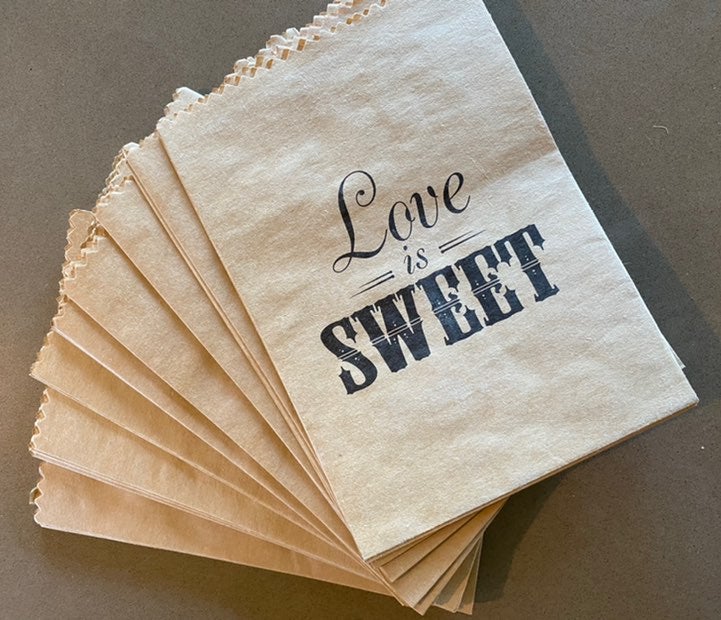 Love
is
SWEET